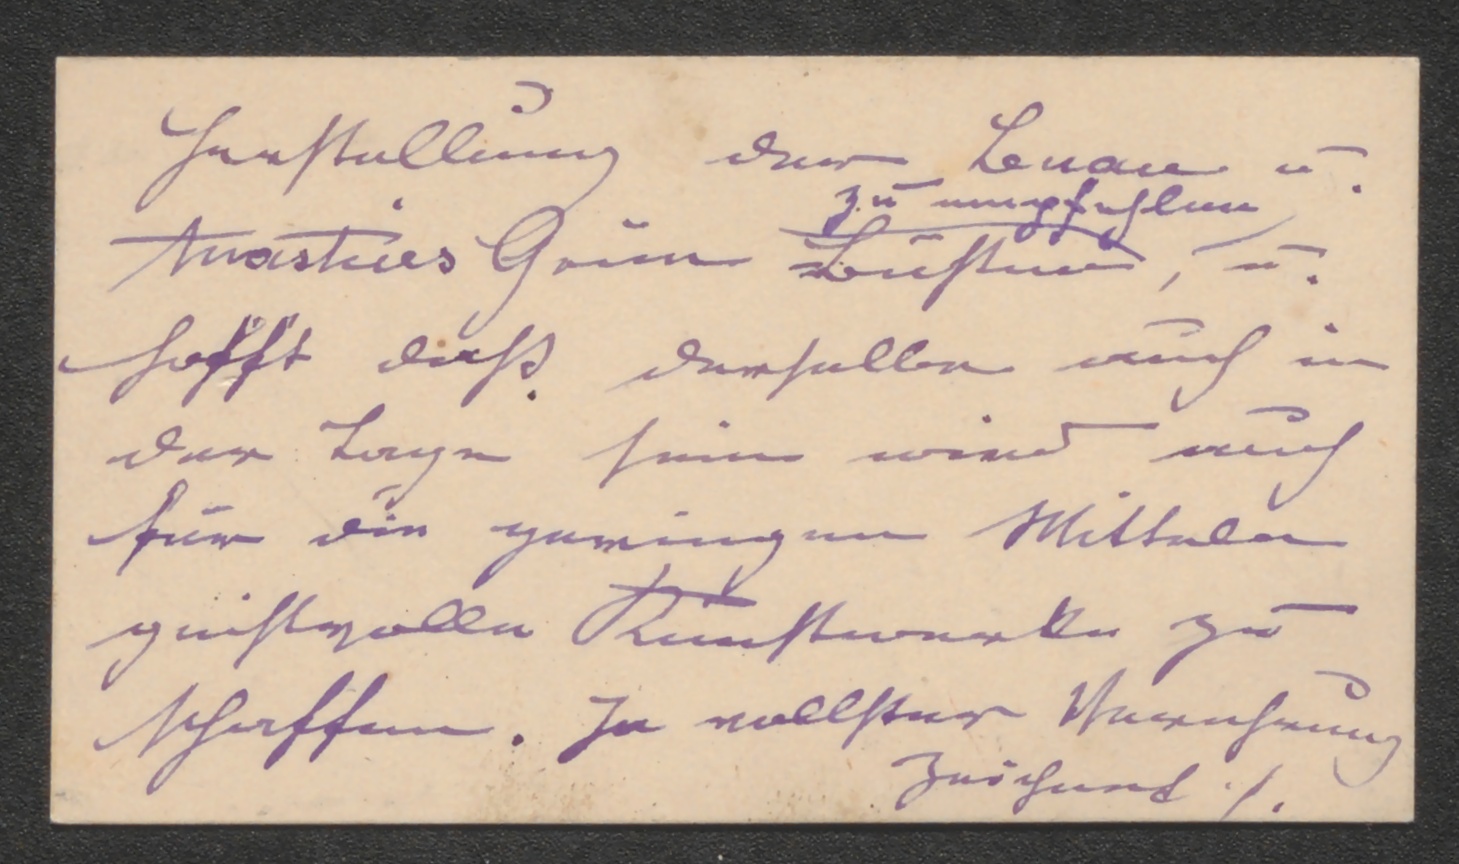 Herstellung der Lenau u.
zu empfehlen
Anastasius Grün Büsten, u.
hofft daß derselbe auch in
der Lage sein wird auch
für die geringen Mitteln
geistvolle Kunstwerke zu
schaffen. In vollster Verehrung
zeichnend